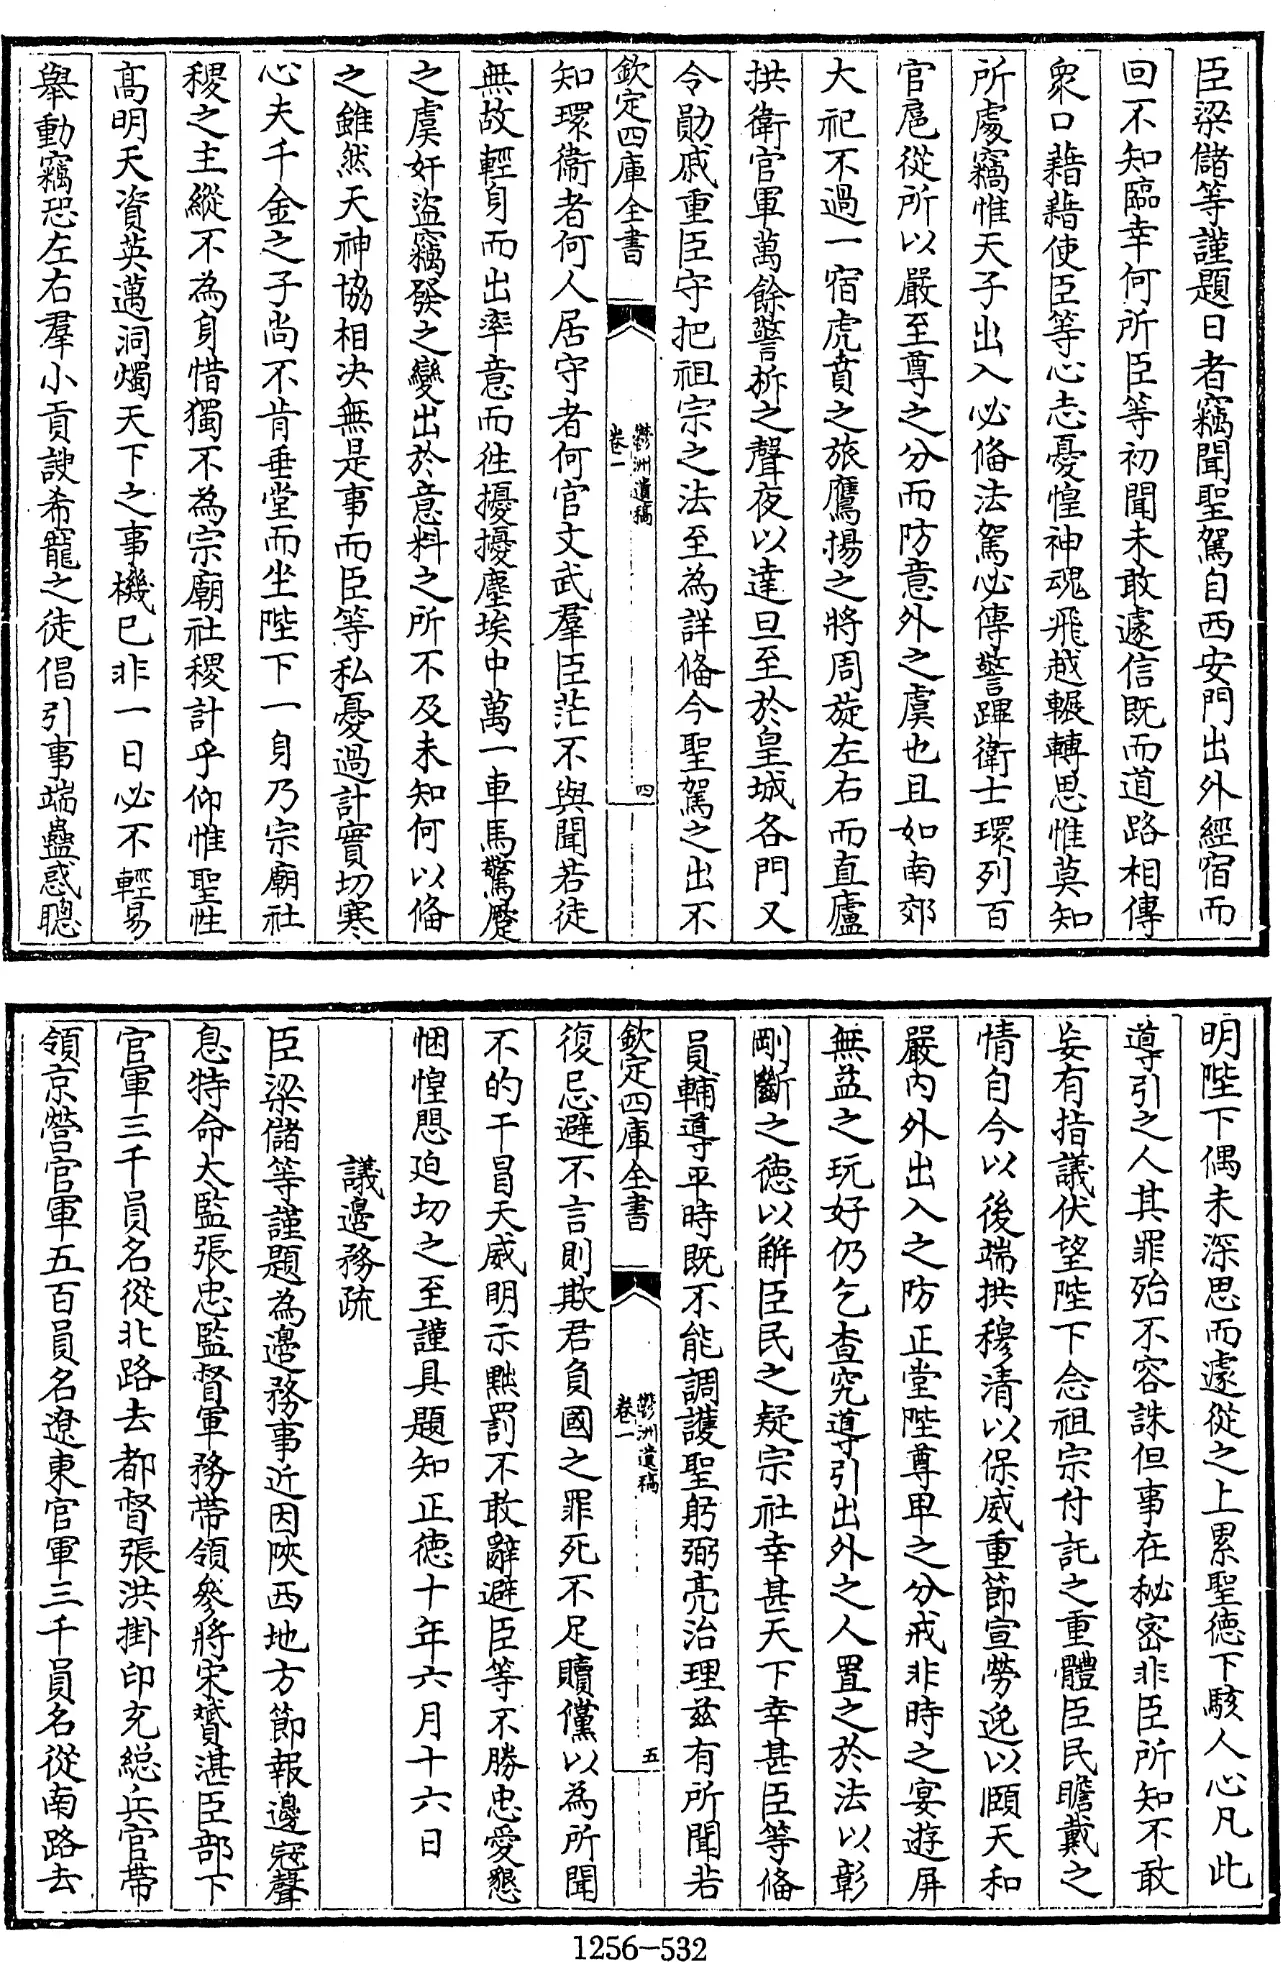 臣梁儲等謹題日者竊聞聖駕自西安門出外經宿而
回不知臨幸何所臣等初聞未敢遽信既而道路相傳
衆口藉藉使臣等心志憂惶神魂飛越輾轉思惟莫知
所處竊惟天子出入必俻法駕必傳警蹕衛士環列百
官扈從所以嚴至尊之分而防意外之虞也且如南郊
大祀不過一宿虎賁之旅鷹揚之將周旋左右而直廬
拱衛官軍萬餘警柝之聲夜以達旦至於皇城各門又
令勛戚重臣守把祖宗之法至為詳俻今聖駕之出不
欽定四庫全書
鬱洲遺稿
卷一
四
知環衛者何人居守者何官文武羣臣茫不與聞若徒
無故輕身而出率意而徃擾擾塵埃中萬一車馬驚蹷
之虞奸盜竊發之變出於意料之所不及未知何以俻
之雖然天神協相决無是事而臣等私憂過計實切寒
心夫千金之子尚不肯垂堂而坐陛下一身乃宗廟社
稷之主縱不為身惜獨不為宗廟社稷計乎仰惟聖性
高明天資英邁洞燭天下之事機已非一日必不輕易
舉動竊恐左右羣小貢諛希寵之徒倡引事端蠱惑聰
明陛下偶未深思而遽從之上累聖德下駭人心凡此
導引之人其罪殆不容誅但事在秘密非臣所知不敢
妄有指議伏望陛下念祖宗付託之重體臣民瞻戴之
情自今以後端拱穆清以保威重節宣勞逸以頤天和
嚴內外出入之防正堂陛尊卑之分戒非時之宴遊屏
無益之玩好仍乞查究導引出外之人置之於法以彰
剛斷之德以解臣民之疑宗社幸甚天下幸甚臣等俻
員輔導平時既不能調護聖躬弼亮治理兹有所聞若
欽定四庫全書
鬱洲遺稿
卷一
五
復忌避不言則欺君負國之罪死不足贖儻以為所聞
不的干冒天威明示黜罰不敢辭避臣等不勝忠愛懇
悃惶悬迫切之至謹具題知正德十年六月十六日
議邊務疏
臣梁儲等謹題為邊務事近因陝西地方節報邊冦聲
息特命太監張忠監督軍務帶領叅將宋贇湛臣部下
官軍三千員名從北路去都督張洪掛印充總兵官帶
領京營官軍五百員名遼東官軍三千員名從南路去
1256-532